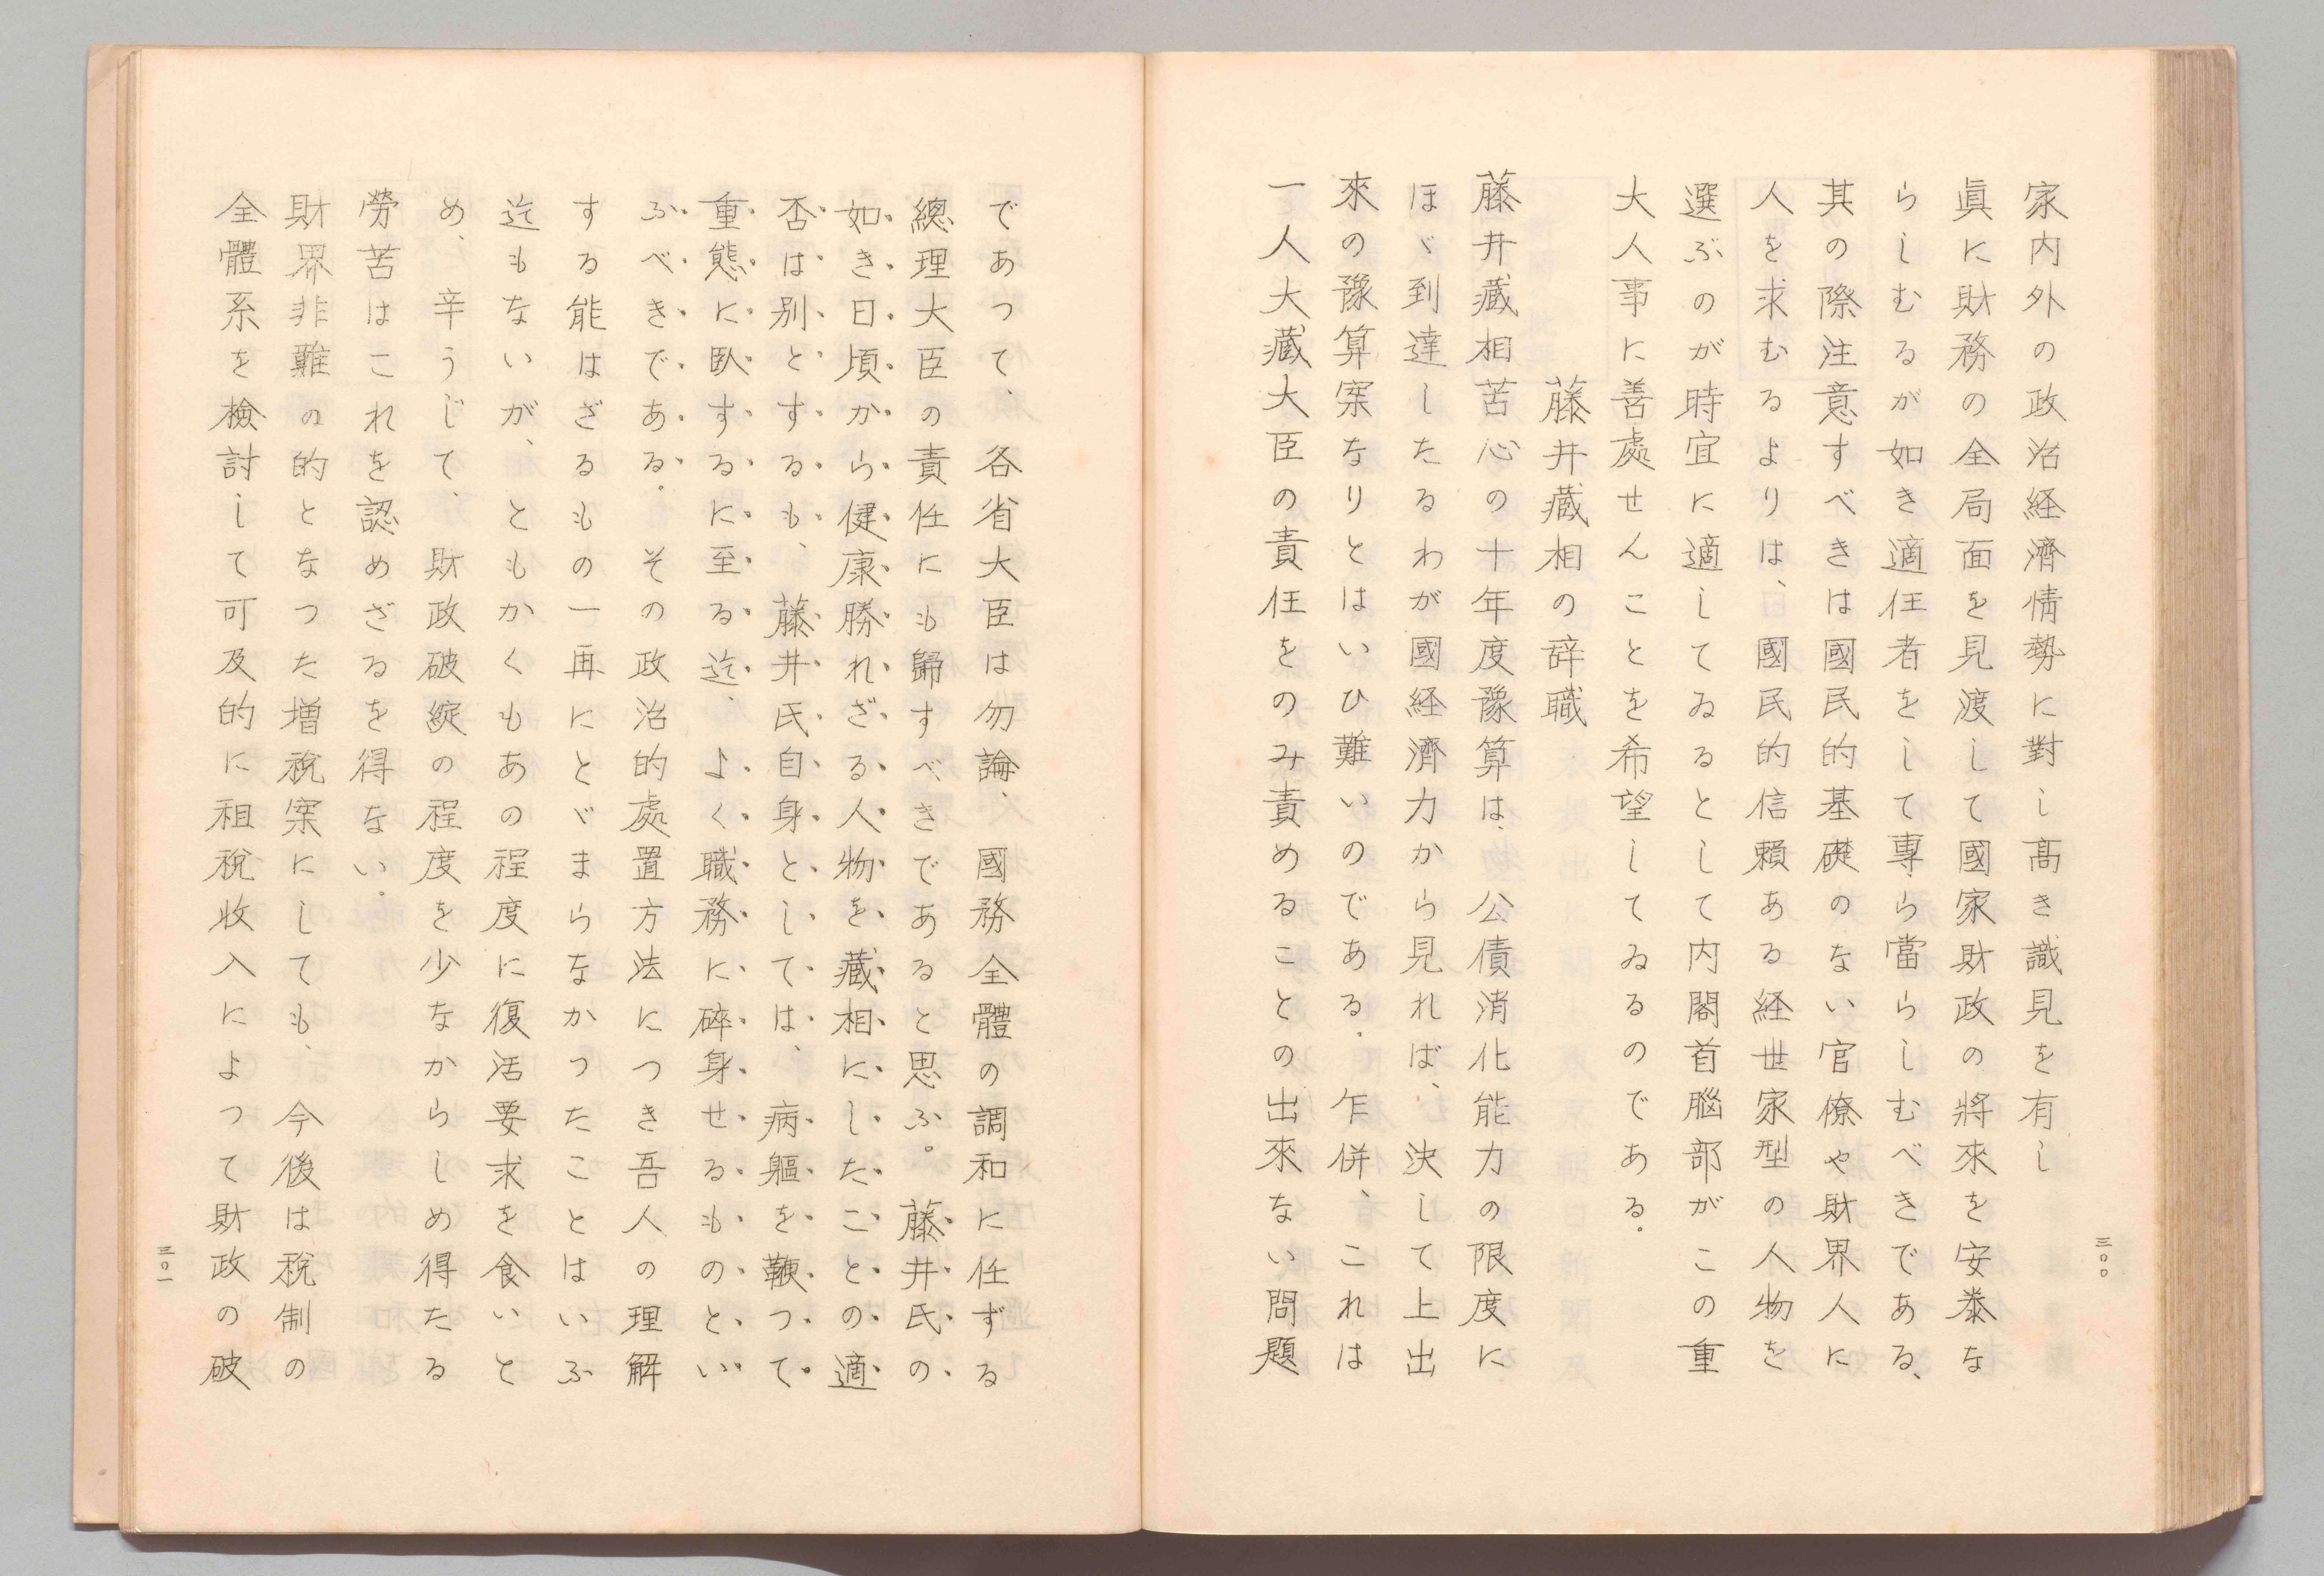 家内外の政治経濟情勢に對し髙き識見を有し
眞に財務の全局面を見渡して國家財政の將來を安泰な
らしむるが如き適任者をして專ら當らしむべきである、
其の際注意すべきは國民的基礎のない官僚や財界人に
人を求むるよりは、國民的信賴ある経世家型の人物を
選ぶのが時宜に適してゐるとして内閣首腦部がこの重
大人事に善處せんことを希望してゐるのである。
藤井藏相の辞職
藤井藏相苦心の十年度豫算は、公債消化能力の限度に
ほゞ到達したるわが國経濟力から見れば、決して上出
來の豫算案なりとはいひ難いのである。乍併、これは
一人大藏大臣の責任をのみ責めることの出來ない問題
三〇〇
であつて、各省大臣は勿論、國務全體の調和に任ずる
總理大臣の責任にも歸すべきであると思ふ。藤井氏の
如き日頃から健康勝れざる人物を藏相にしたことの適
否は別とするも、藤井氏自身としては、病軀を鞭つて
重態に臥するに至る迄、よく職務に碎身せるものとい
ふべきである。その政治的處置方法につき吾人の理解
する能はざるもの一再にとゞまらなかつたことはいふ
迄もないが、ともかくもあの程度に復活要求を食いと
め、辛うじて、財政破綻の程度を少なからしめ得たる
勞苦はこれを認めざるを得ない。
財界非難の的となつた増稅案にしても、今後は稅制の
全體系を檢討して可及的に租稅收入によつて財政の破
三〇一